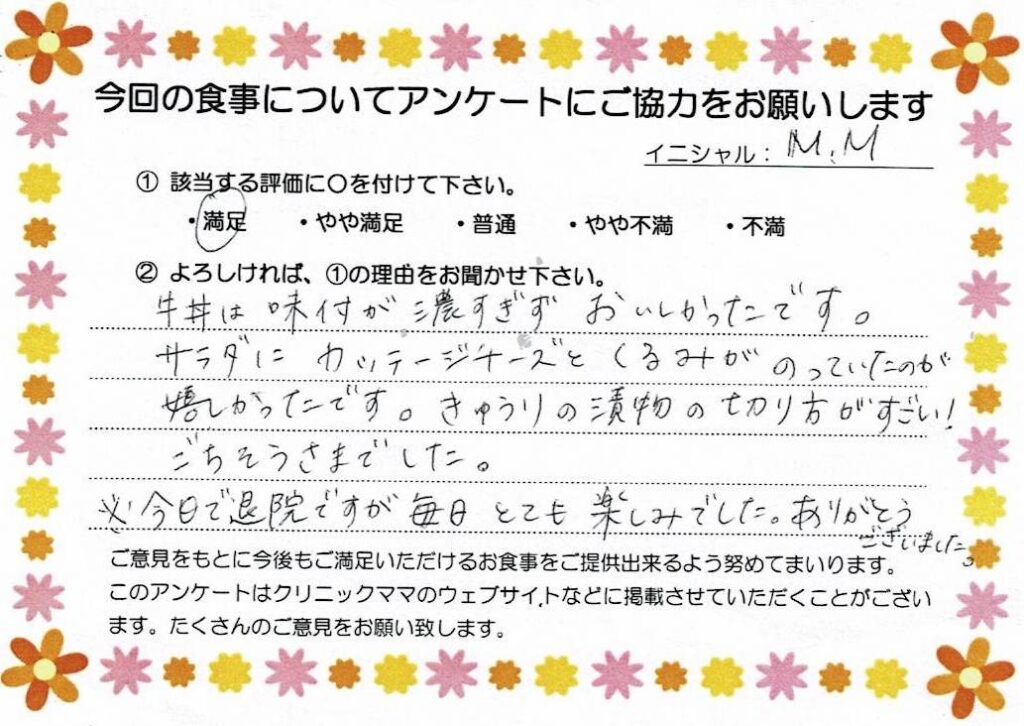 今回の食事についてアンケートにご協力をお願いします
イニシャル： M.M
① 該当する評価に〇を付けて下さい。
・満足 ・やや満足 ・普通 ・やや不満 ・不満
② よろしければ、①の理由をお聞かせ下さい。
牛丼は味付が濃すぎず おいしかったです。
サラダに カッテージチーズと くるみが のっていたのが
嬉しかったです。きゅうりの漬物の切り方がすごい！
ごちそうさまでした。
※今日で退院ですが 毎日 とても 楽しみでした。ありがとう
ございました。
ご意見をもとに今後もご満足いただけるお食事をご提供出来るよう努めてまいります。
このアンケートはクリニックママのウェブサイトなどに掲載させていただくことがござい
ます。たくさんのご意見をお願い致します。